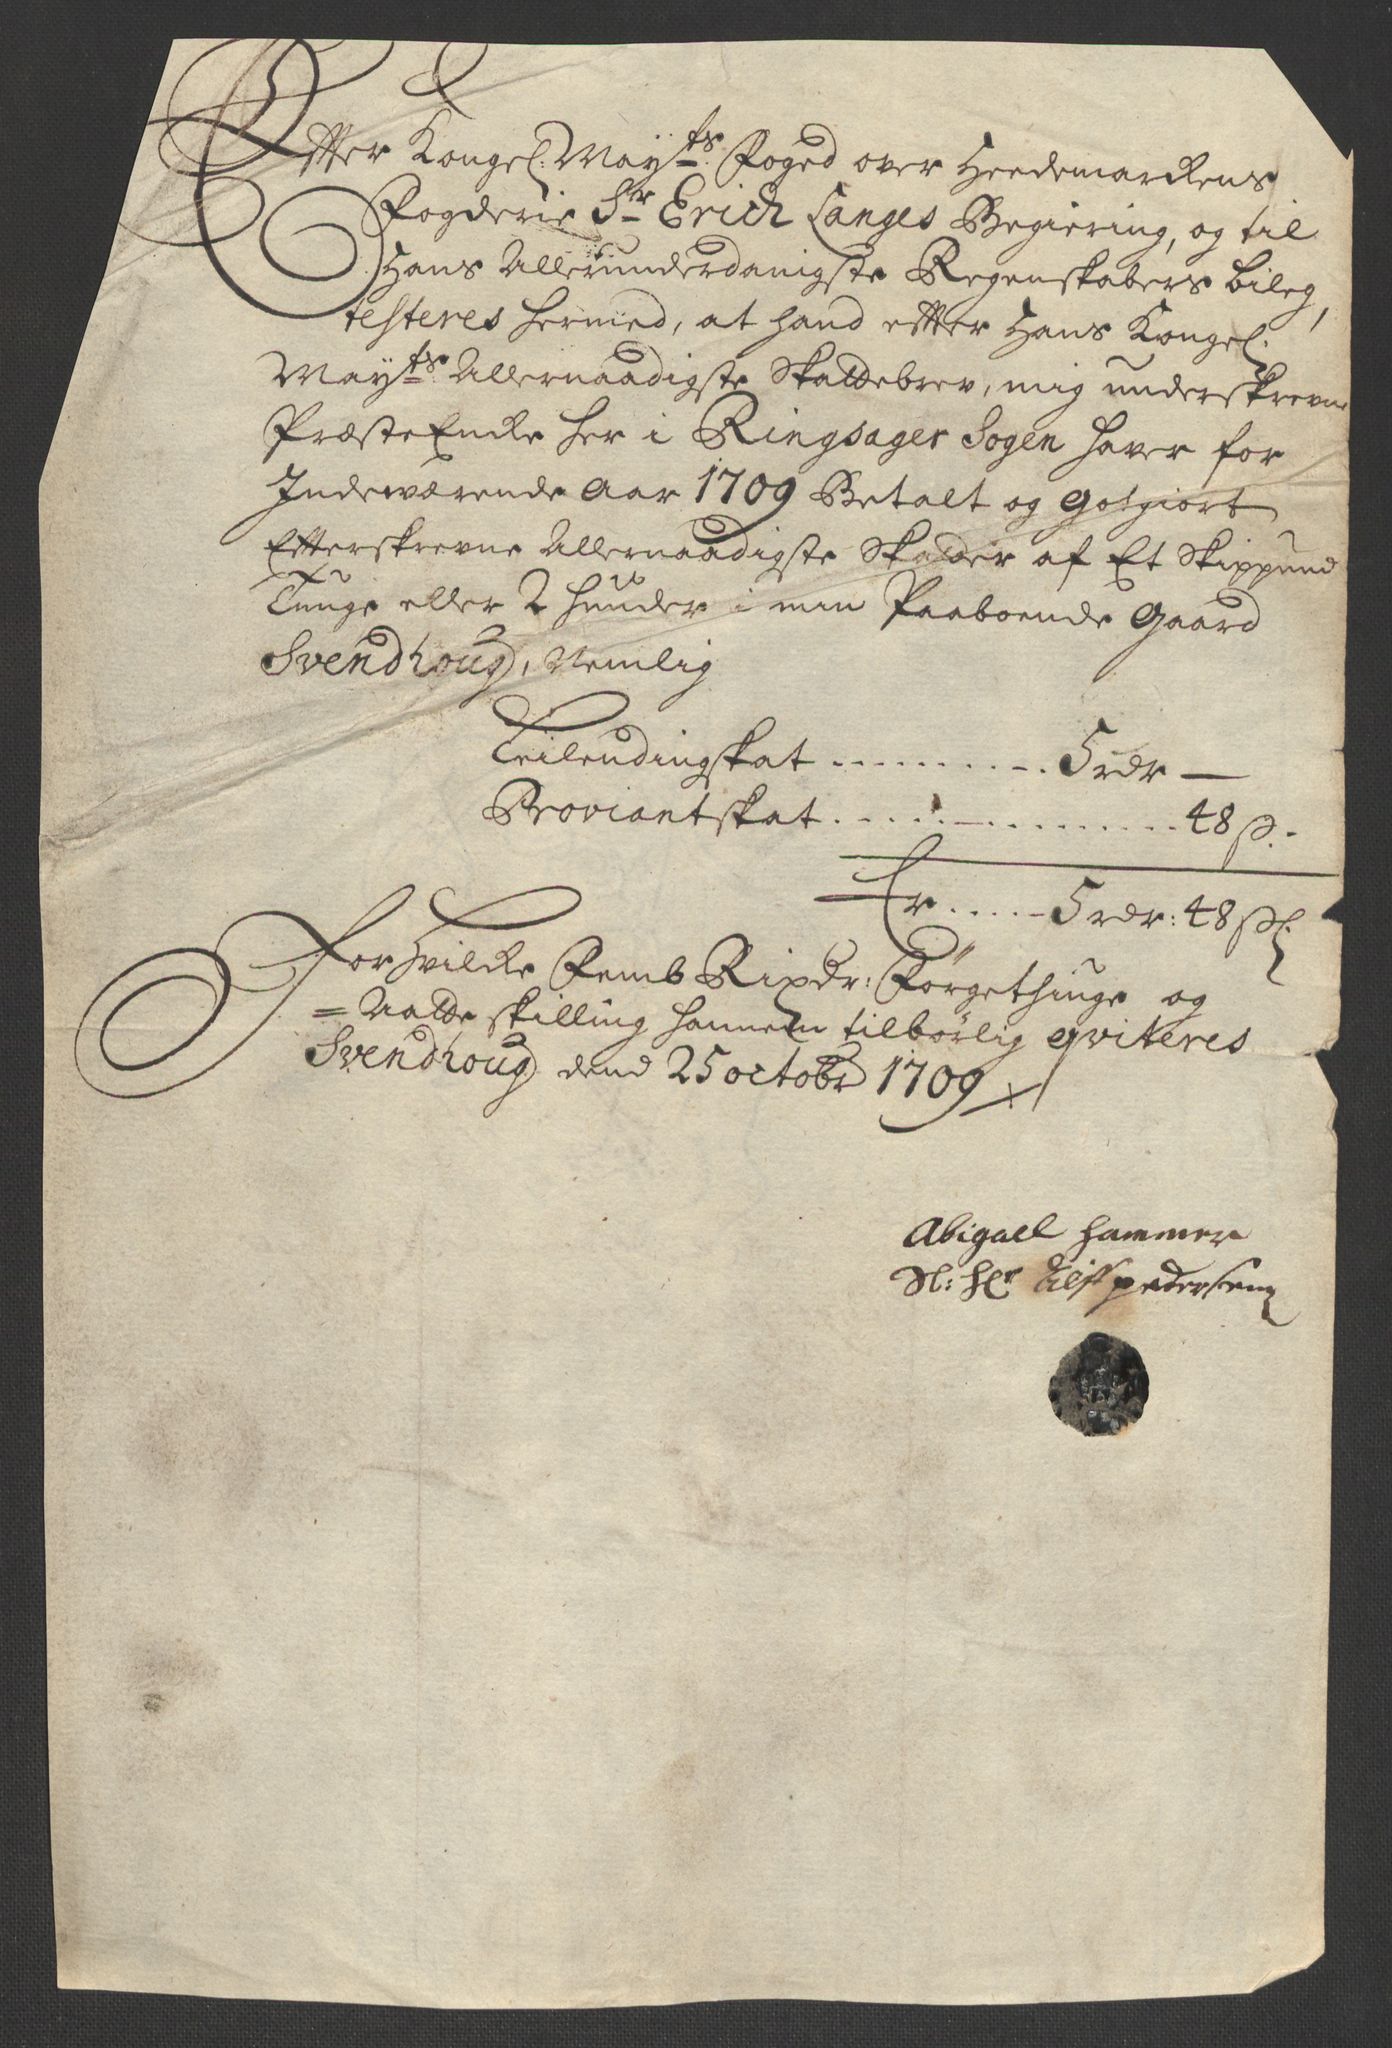 Etter Kongel: May:ts Foged over Heedemarckens
Fogderie Sr Erich Langes Begiering, og til
Hans Allerunderdanigste Regenskabers bileg,
testeres hermed, at hand etter Hans Kongel:
May:ts Allernaadigste Skattebrev, mig underskrevne
PræsteEncke her i Ringsager Sogen haver for
Indeværende Aar 1709 Betalt og Gotgiort
Efterskrevne Allernaadigste Skatter af Et Skippund
Tunge eller 2 huuder i min Paaboende Gaard
Svendhoug, Nemlig
Leilendingskat ......... 5 rdr —
Proviantskat ................ 48 ß.
Er ..... 5 rdr: 48 ß:
For Hvilcke Femb Rixdr: Förgethiuge og
= Aatte skilling hannem tilbörlig qviteres
Svendhoug dend 25 octobr 1709
Abigael Hammer
Sl: Hr pedersens